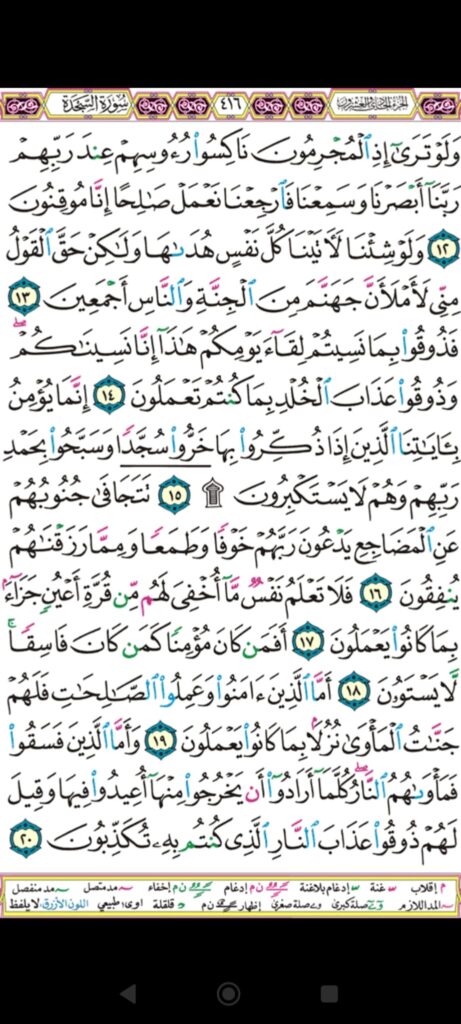 سُورَةُ السَّجْدَةِ ٤١٦ الجزء الحادي والعشرون
وَلَوْ تَرَىٰٓ إِذِ ٱلْمُجْرِمُونَ نَاكِسُوا۟ رُءُوسِهِمْ عِندَ رَبِّهِمْ
رَبَّنَآ أَبْصَرْنَا وَسَمِعْنَا فَٱرْجِعْنَا نَعْمَلْ صَٰلِحًا إِنَّا مُوقِنُونَ
١٢ وَلَوْ شِئْنَا لَـَٔاتَيْنَا كُلَّ نَفْسٍ هُدَىٰهَا وَلَٰكِنْ حَقَّ ٱلْقَوْلُ
مِنِّى لَأَمْلَأَنَّ جَهَنَّمَ مِنَ ٱلْجِنَّةِ وَٱلنَّاسِ أَجْمَعِينَ ١٣
فَذُوقُوا۟ بِمَا نَسِيتُمْ لِقَآءَ يَوْمِكُمْ هَٰذَآ إِنَّا نَسِينَٰكُمْ ۖ
وَذُوقُوا۟ عَذَابَ ٱلْخُلْدِ بِمَا كُنتُمْ تَعْمَلُونَ ١٤ إِنَّمَا يُؤْمِنُ
بِـَٔايَٰتِنَا ٱلَّذِينَ إِذَا ذُكِّرُوا۟ بِهَا خَرُّوا۟ سُجَّدًا وَسَبَّحُوا۟ بِحَمْدِ
رَبِّهِمْ وَهُمْ لَا يَسْتَكْبِرُونَ ۩ ١٥ تَتَجَافَىٰ جُنُوبُهُمْ
عَنِ ٱلْمَضَاجِعِ يَدْعُونَ رَبَّهُمْ خَوْفًا وَطَمَعًا وَمِمَّا رَزَقْنَٰهُمْ
يُنفِقُونَ ١٦ فَلَا تَعْلَمُ نَفْسٌ مَّآ أُخْفِىَ لَهُم مِّن قُرَّةِ أَعْيُنٍ جَزَآءًۢ
بِمَا كَانُوا۟ يَعْمَلُونَ ١٧ أَفَمَن كَانَ مُؤْمِنًا كَمَن كَانَ فَاسِقًا ۚ
لَّا يَسْتَوُۥنَ ١٨ أَمَّا ٱلَّذِينَ ءَامَنُوا۟ وَعَمِلُوا۟ ٱلصَّٰلِحَٰتِ فَلَهُمْ
جَنَّٰتُ ٱلْمَأْوَىٰ نُزُلًۢا بِمَا كَانُوا۟ يَعْمَلُونَ ١٩ وَأَمَّا ٱلَّذِينَ فَسَقُوا۟
فَمَأْوَىٰهُمُ ٱلنَّارُ ۖ كُلَّمَآ أَرَادُوٓا۟ أَن يَخْرُجُوا۟ مِنْهَآ أُعِيدُوا۟ فِيهَا وَقِيلَ
لَهُمْ ذُوقُوا۟ عَذَابَ ٱلنَّارِ ٱلَّذِى كُنتُم بِهِۦ تُكَذِّبُونَ ٢٠
م إقلاب غنة إدغام بلاغنة ن م إدغام ن م إخفاء مد متصل مد منفصل
المد اللازم صلة كبرى صلة صغرى إظهار ن م قلقلة اوى: طبيعي اللون الأزرق: لا يلفظ